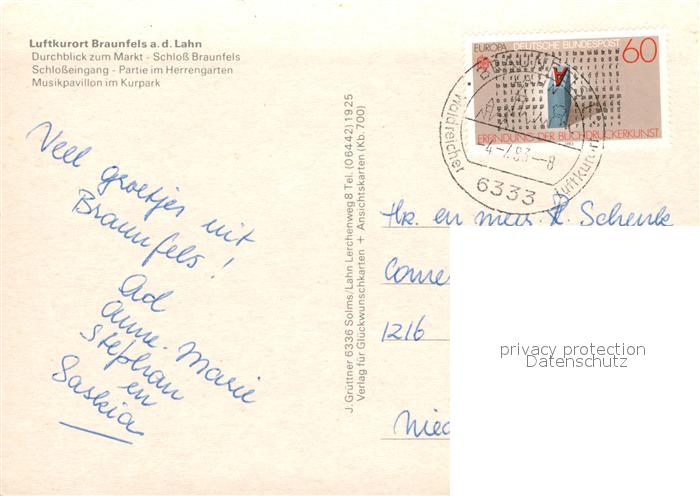 Luftkurort Braunfels a.d. Lahn
Durchblick zum Markt - Schloß Braunfels
Schloßeingang - Partie im Herrengarten
Musikpavillon im Kurpark
Veel groetjes uit
Braunfels!
Ad
Anne-Marie
Stephan
en
Saskia
J. Grüttner 6336 Solms/Lahn Lerchenweg 8 Tel. (06442) 1925
Verlag für Glückwunschkarten + Ansichtskarten (Kb. 700)
EUROPA DEUTSCHE BUNDESPOST 60
ERFINDUNG DER BUCHDRUCKERKUNST
Waldreicher
-8
6333
Luftkurort
Hr. en mevr. R. Schenk
1216
privacy protection
Datenschutz